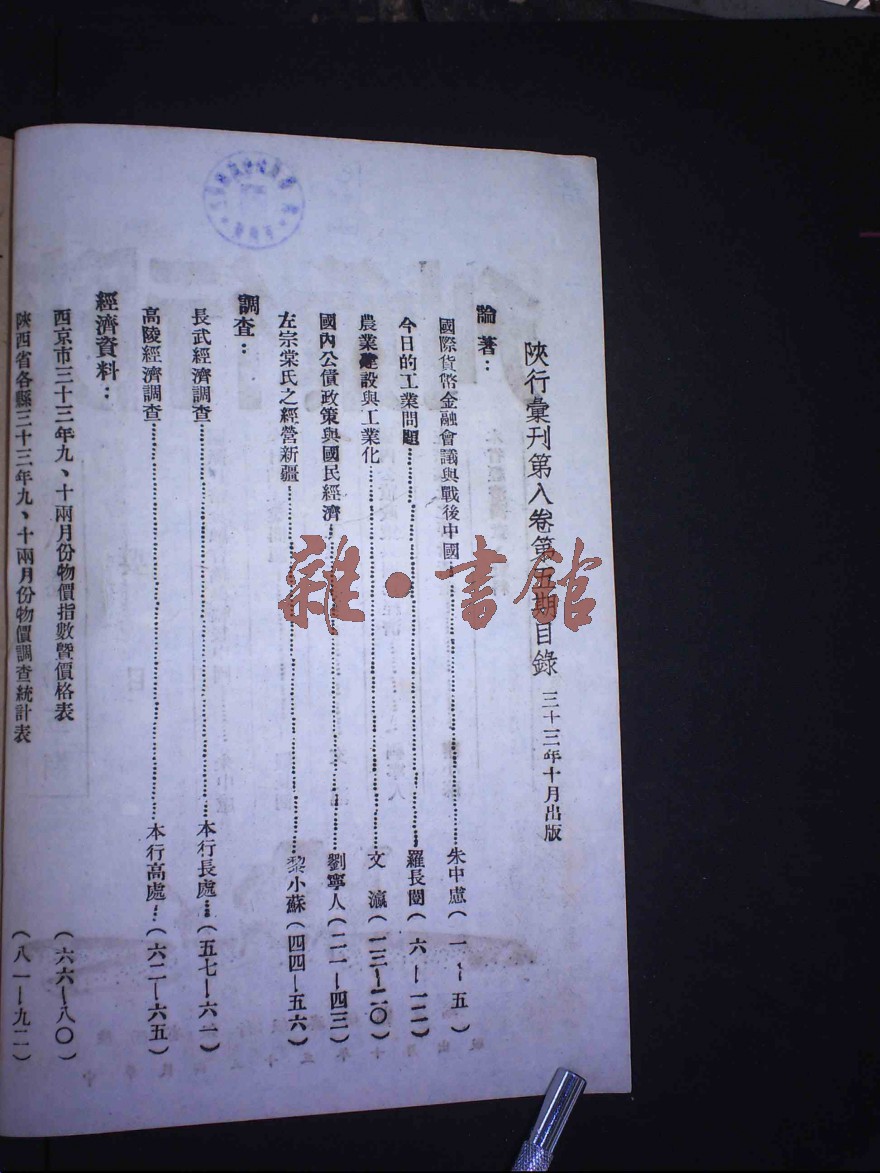 陝行彙刊第八卷第五期目錄 三十三年十月出版
論著：
國際貨幣金融會議與戰後中國……朱中慮（一—五）
今日的工業問題……羅長闓（六—一二）
農業建設與工業化……文瀛（一三—二〇）
國內公債政策與國民經濟……劉寧人（二一—四三）
左宗棠氏之經營新疆……黎小蘇（四四—五六）
調查：
長武經濟調查……本行長處…（五七—六一）
高陵經濟調查……本行高處…（六二—六五）
經濟資料：
西京市三十三年九、十兩月份物價指數暨價格表（六六—八〇）
陝西省各縣三十三年九、十兩月份物價調查統計表（八一—九二）
雜·書館